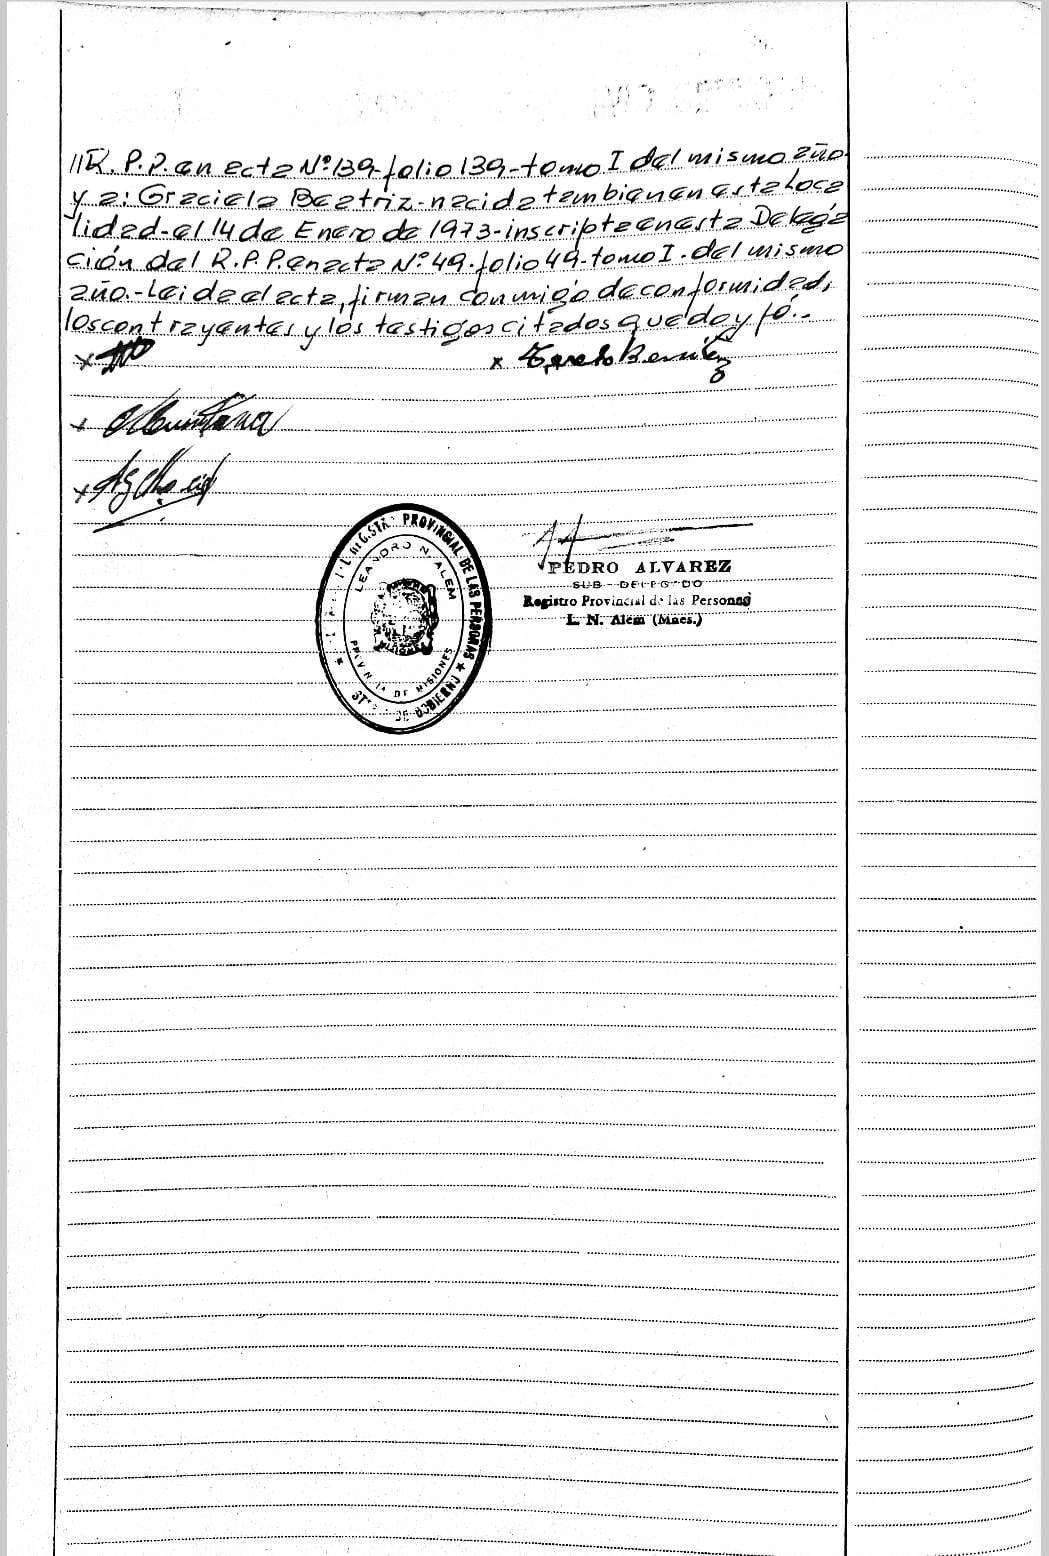 //R. P. P. en acta Nº 139-folio 139-tomo I del mismo año-
y a: Graciela Beatriz-nacida tambien en esta Loca
lidad-el 14 de Enero de 1973-inscripta en esta Delega
ción del R.P.P. en acta Nº 49-folio 49-tomo I-del mismo
año.-Leida el acta, firman conmigo de conformidad,
los contrayentes y los testigos citados que doy fé.-
x
x Benitez
x Quintana
x
REGISTRO PROVINCIAL DE LAS PERSONAS
LEANDRO N. ALEM
PROVINCIA DE MISIONES
DE GOBIERNO
PEDRO ALVAREZ
SUB-DELEGADO
Registro Provincial de las Personas
L. N. Alem (Mnes.)